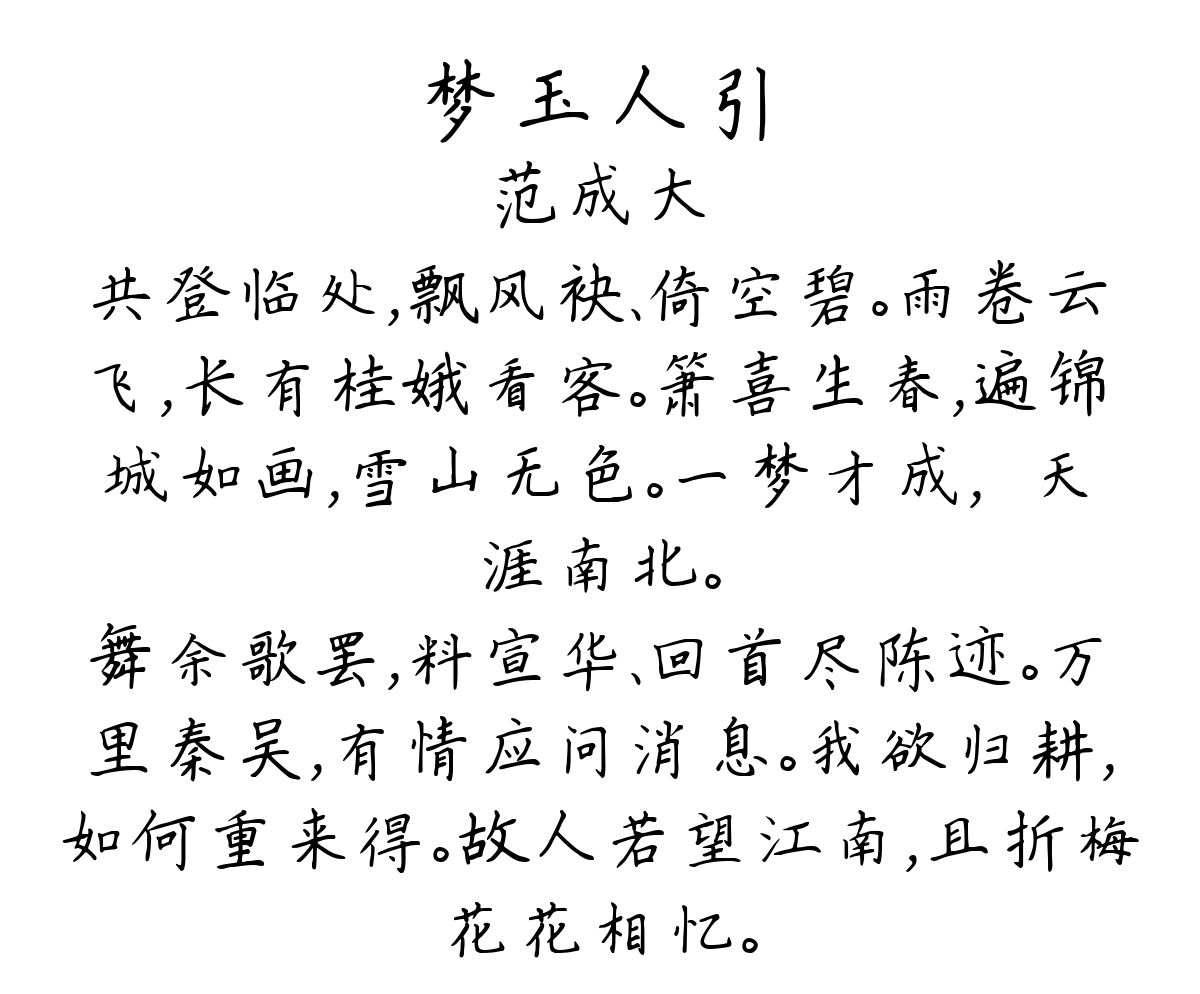 梦玉人引
范成大
共登临处,飘风袂、倚空碧。雨卷云
飞,长有桂娥看客。箫喜生春,遍锦
城如画,雪山无色。一梦才成,天
涯南北。
舞余歌罢,料宣华、回首尽陈迹。万
里秦吴,有情应问消息。我欲归耕,
如何重来得。故人若望江南,且折梅
花花相忆。